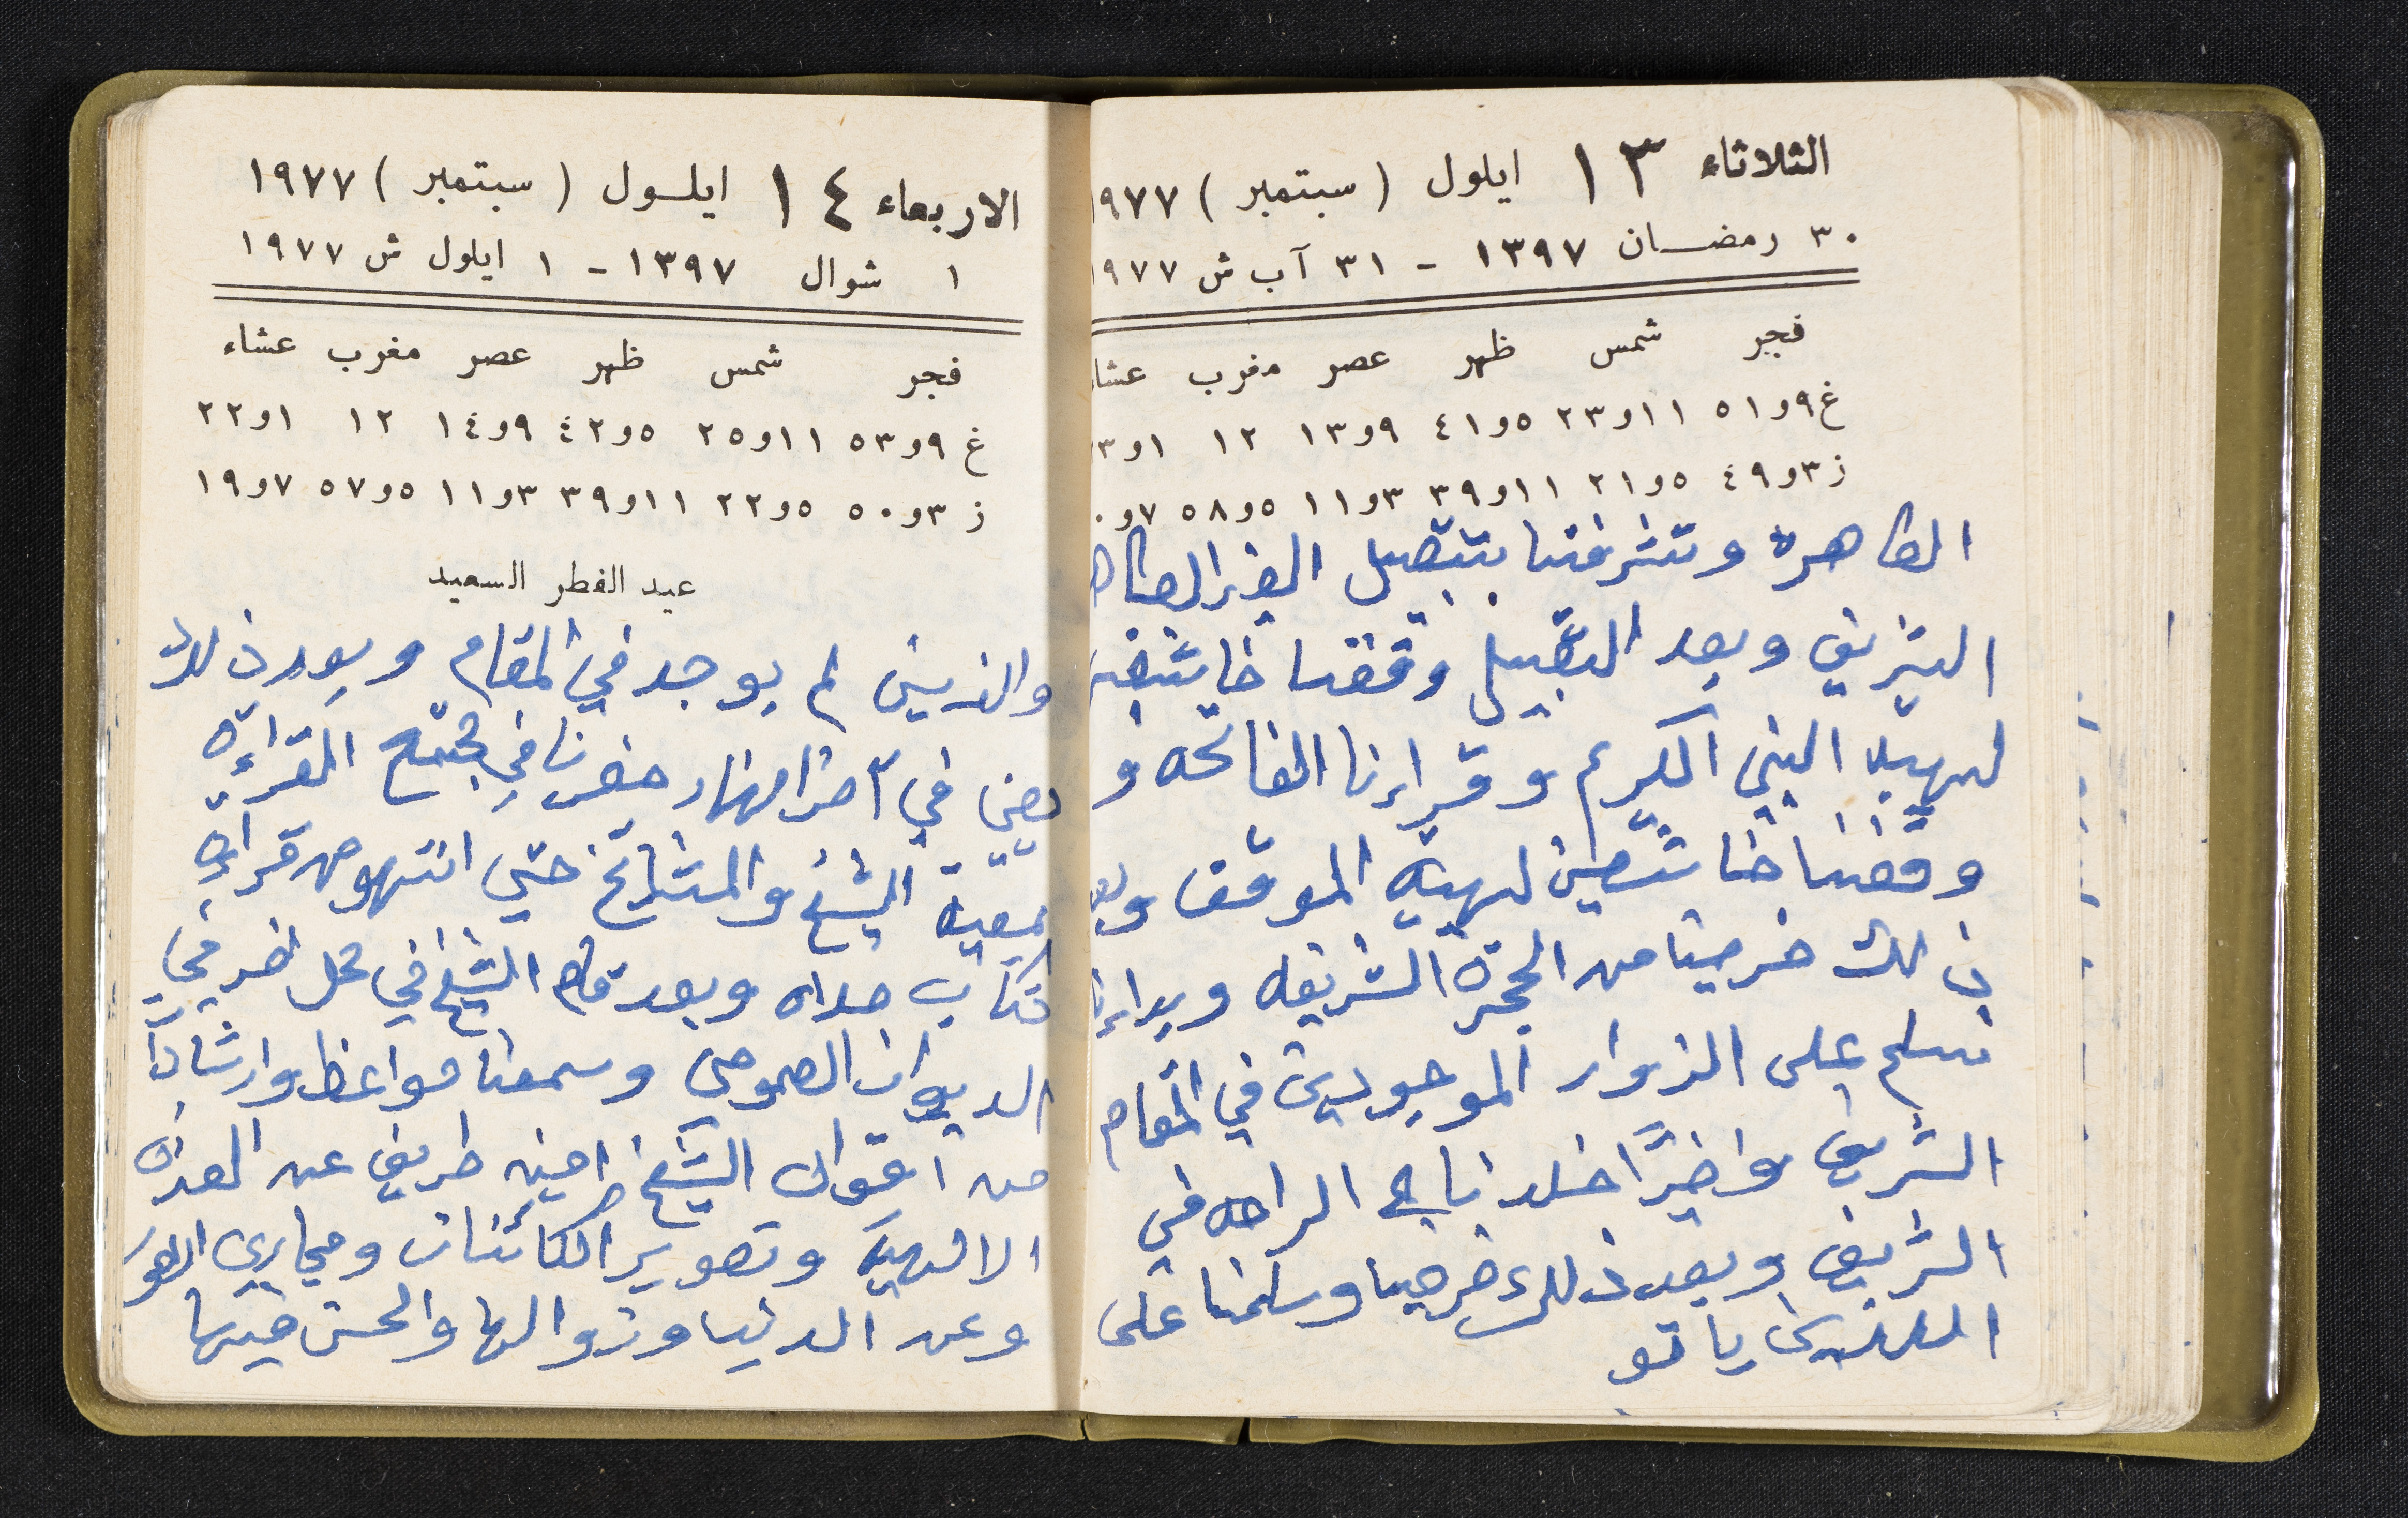 الثلاثاء ١٣ ايلول ( سبتمبر ) ١٩٧٧
٣٠ رمضـان ١٣٩٧ - ٣١ آب ش ١٩٧٧
فجر شمس ظهر عصر مغرب عشا
غ ٩و٥١ ١١و٢٣ ٥و٤١ ٩و١٣ ١٢ ١و٢٣
ز ٣و٤٩ ٥و٢١ ١١و٣٩ ٣و١١ ٥و٥٨ ٧و٢٠
الطاهره وتشرفنا بتقبيل
الشريف وبعد التقبيل وقفنا خاشعين
لهيبة النبي الكريم وقراءنا الفاتحه و
وقفنا خاشعين لهيبة الموقف وبعد
ذالك خرجنا من الحجرة الشريفه وبداءنا
نسلم على الزوار الموجودين في المقام
الشريف واخيرًا اخلدنا الى الراحه في
الشريف وبعد ذلك خرجنا وسلمنا على
الذين ياتو
الاربعاء ١٤ ايلـول ( سبتمبر ) ١٩٧٧
١ شوال ١٣٩٧ - ١ ايلول ش ١٩٧٧
فجر شمس ظهر عصر مغرب عشاء
غ ٩و٥٣ ١١و٢٥ ٥و٤٢ ٩و١٤ ١٢ ١و٢٢
ز ٣و٥٠ ٥و٢٢ ١١و٣٩ ٣و١١ ٥و٥٧ ٧و١٩
عيد الفطر السعيد
والذين لم يوجد في المقام وبعد ذلك
يعني في آخر النهار حضرنا في مجتمع القراءة
بمعية الشيخ والمشايخ حتى انتهو من قراءة
كتاب وبعد قام الشيخ في محل اخر في
الديوان العمومي وسمعنا مواعظ وارشادا
من اقوال الشيخ امين طريف عن القدرة
الالهية وتصوير الكائنات ومجاري
وعن الدنيا وزوالها والحسن فيها